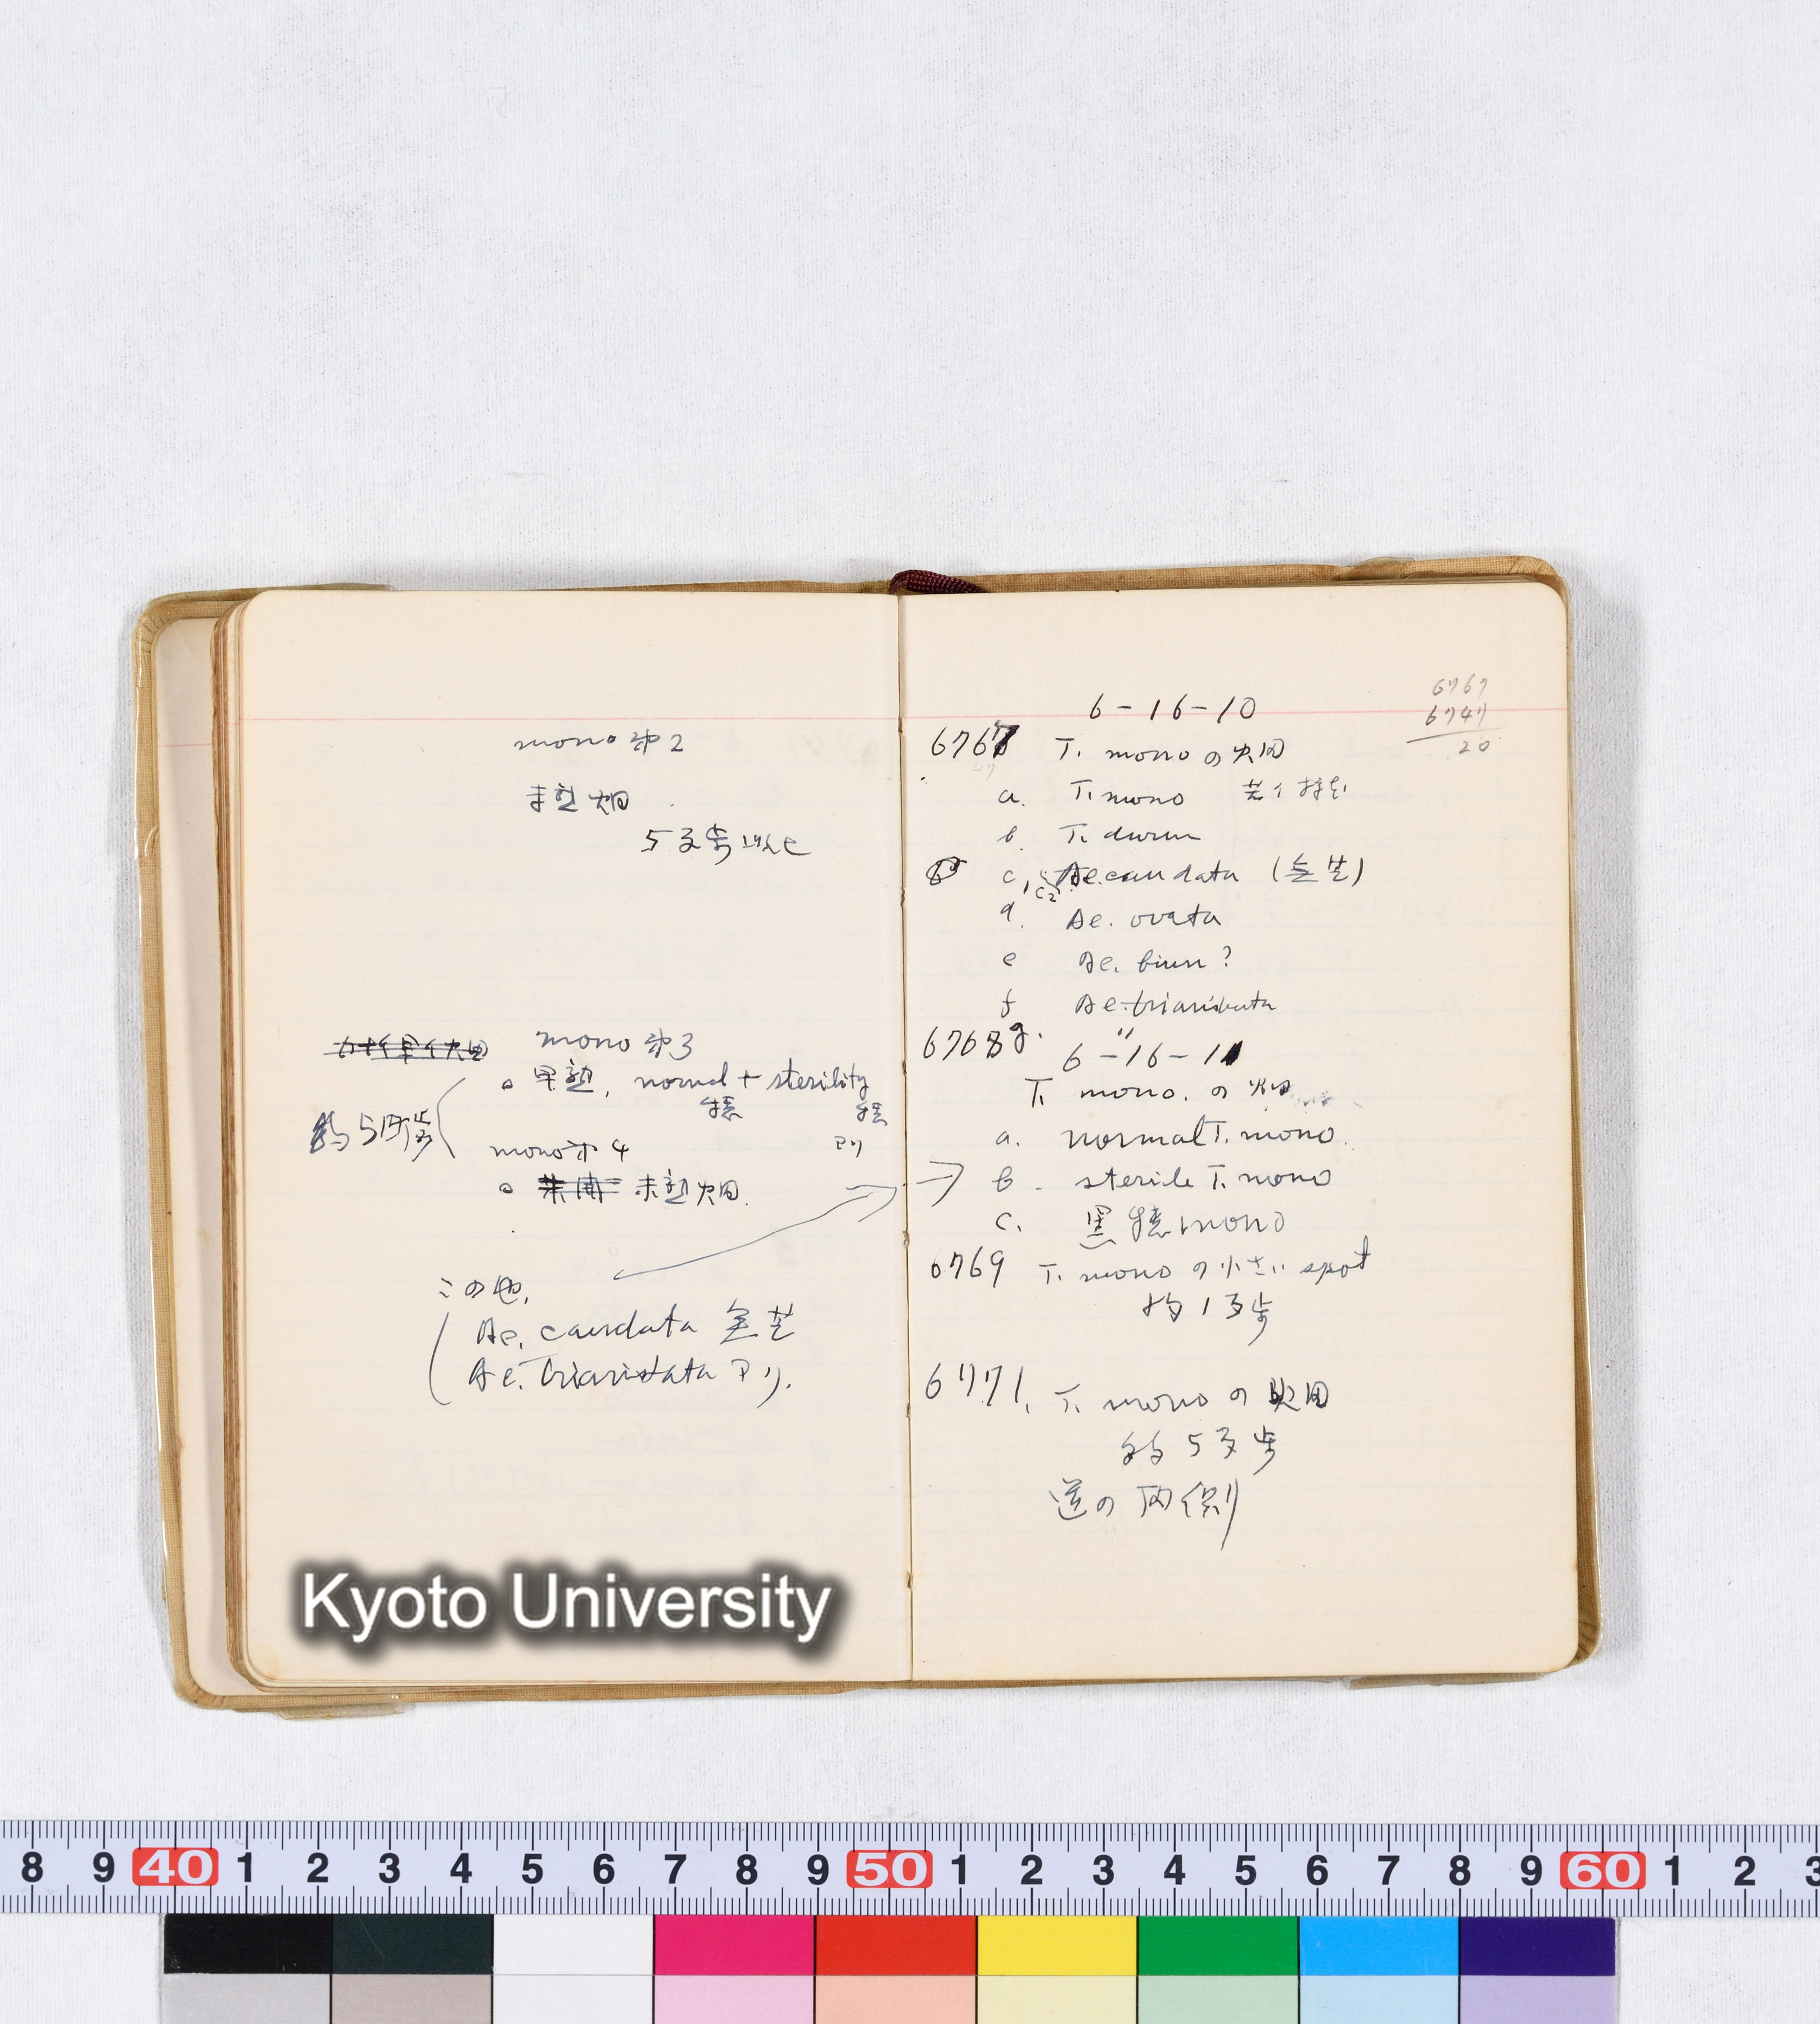 mono 第2
未熟畑
5歩以上
mono 第3
○ 早熟, normal + sterility
穂 穂
アリ
約5
mono 第4
○ 未熟畑.
この他,
Ae. caudata 無芒
Ae. triaristata アリ.
6-16-10
6767
6747
20
6767 T. mono の畑
a. T. mono
b. T. durum
c. Ae. caudata (無芒)
c2
d. Ae. ovata
e Ae. biun?
f Ae. triaristata
g. "
6768 6-16-11
T. mono. の畑
a. normal T. mono.
b. sterile T. mono
c. 黒穂 mono
6769 T. mono の小さい spot
約1歩
6771. T. mono の畑
約5歩
道の両側
Kyoto University
8 9 40 1 2 3 4 5 6 7 8 9 50 1 2 3 4 5 6 7 8 9 60 1 2 3